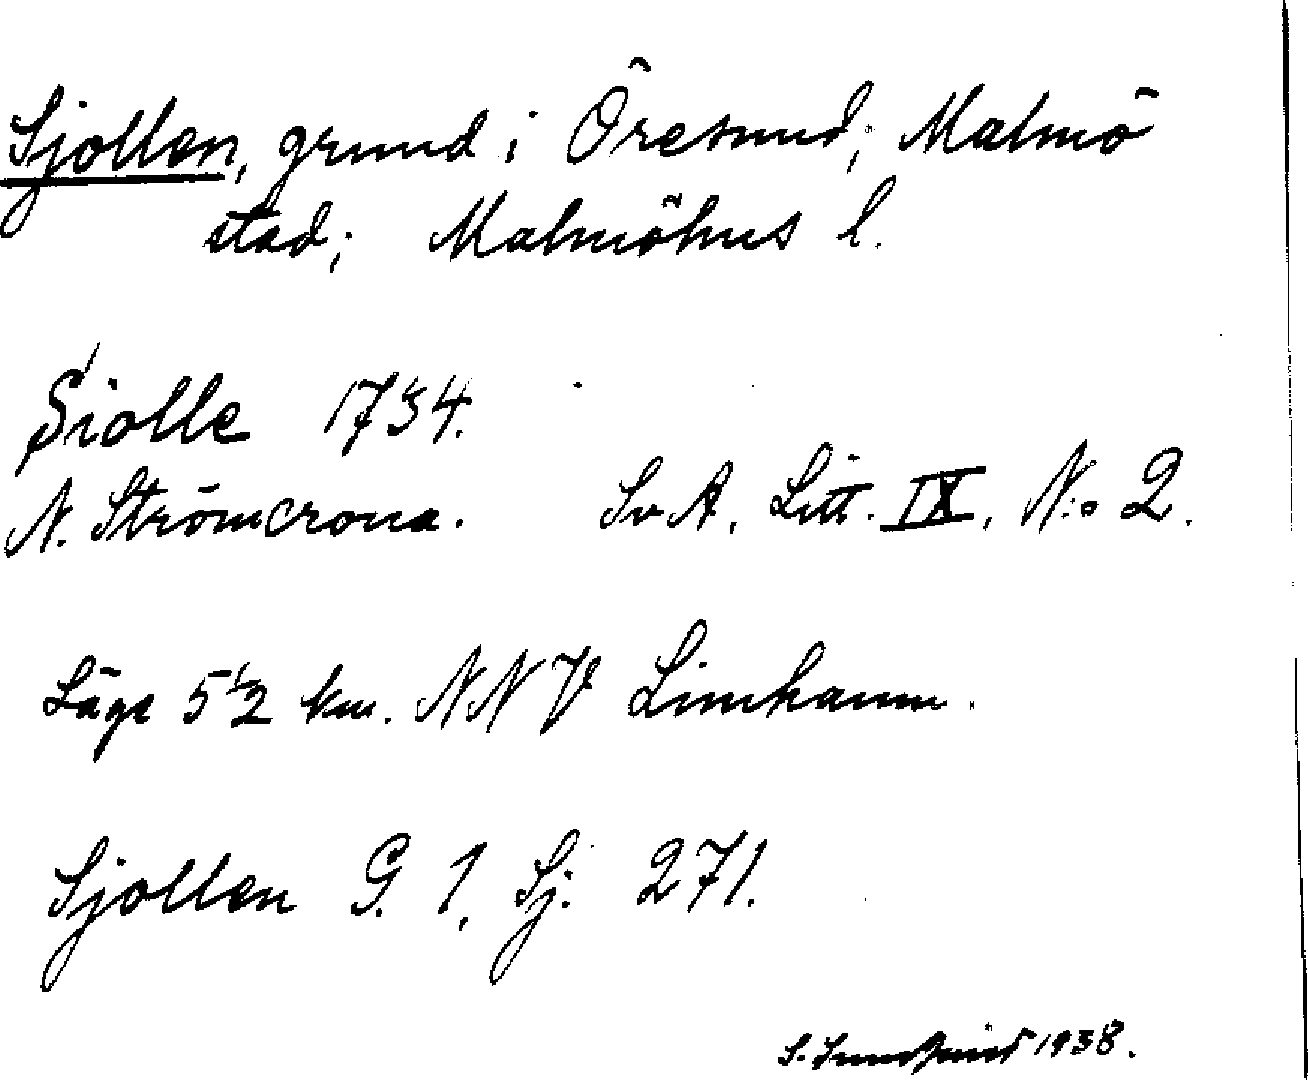 Sjollen, grund i Öresund; Malmö
stad; Malmöhus l.
Siolle 1734.
N. Strömcrona. Sv A. Litt. IX, N:o 2.
Läge 5 1/2 km. NNV Limhamn.
Sjollen G. 1, Sj. 271.
S. 1938.